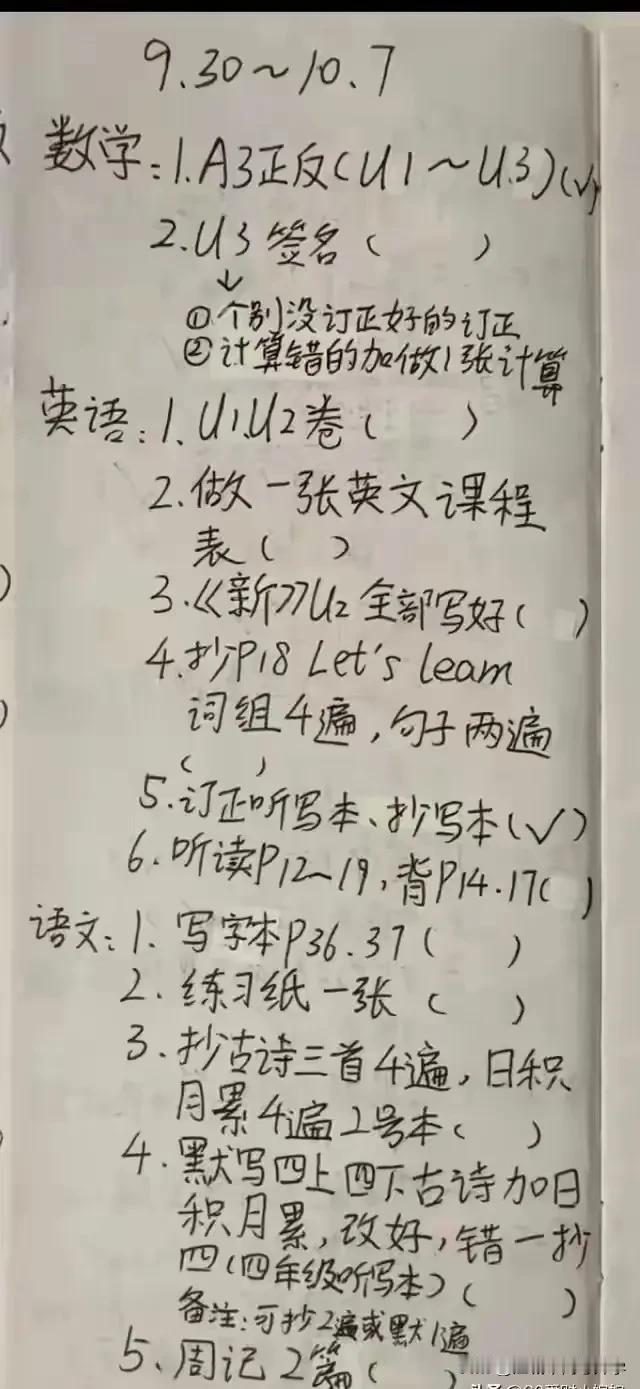 9.30～10.7
数学：1.A3正反(U1～U.3)(√)
2.U3签名（ ）
↓
①个别没订正好的订正
②计算错的加做1张计算
英语：1.U1.U2卷（ ）
2.做一张英文课程
表（ ）
3.《新》U2全部写好（ ）
4.抄P18 Let's learn
词组4遍,句子两遍
（ ）
5.订正听写本、抄写本(√)
6.听读P12～19,背P14.17( )
语文：1.写字本P36.37（ ）
2.练习纸一张（ ）
3.抄古诗三首4遍,日积
月累4遍2号本（ ）
4.默写四上四下古诗加日
积月累,改好,错一抄
四(四年级听写本)（ ）
备注:可抄2遍或默1遍
5.周记2篇（ ）